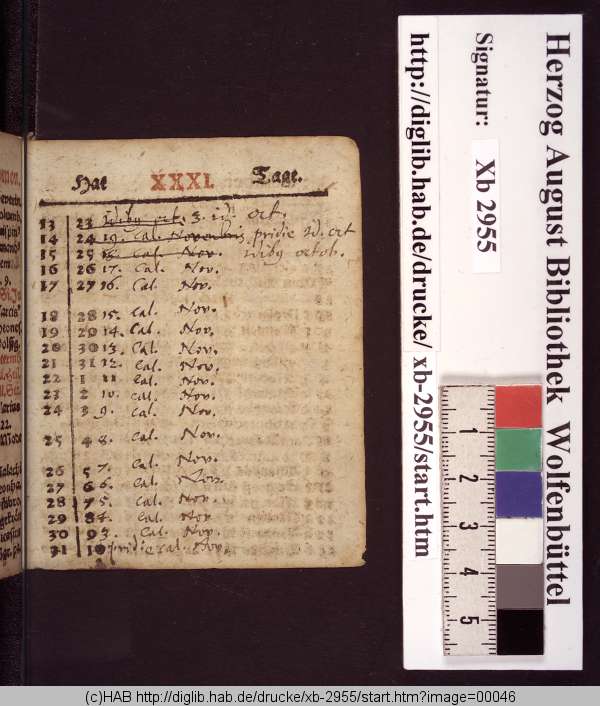 Hat XXXI. Tage.
13 23 3. id. oct.
14 24 19. Cal. Novembris pridie id. oct
15 25 Cal. Nov. idib9 octob.
16 26 17. Cal. Nov.
17 27 16. Cal. Nov.
18 28 15. Cal. Nov.
19 29 14. Cal. Nov.
20 30 13. Cal. Nov.
21 31 12. Cal. Nov.
22 1 11 Cal. Nov.
23 2 10. Cal. Nov.
24 3 9. Cal. Nov.
25 4 8. Cal. Nov.
26 5 7. Cal. Nov.
27 6 6. Cal. Nov.
28 7 5. Cal. Nov.
29 8 4. Cal. Nov
30 9 3. Cal. Nov.
31 10 pridie cal. Nov.
Herzog August Bibliothek Wolfenbüttel
Signatur: Xb 2955
http://diglib.hab.de/drucke/ xb-2955/start.htm
1
2
3
4
5
(c)HAB http://diglib.hab.de/drucke/xb-2955/start.htm?image=00046